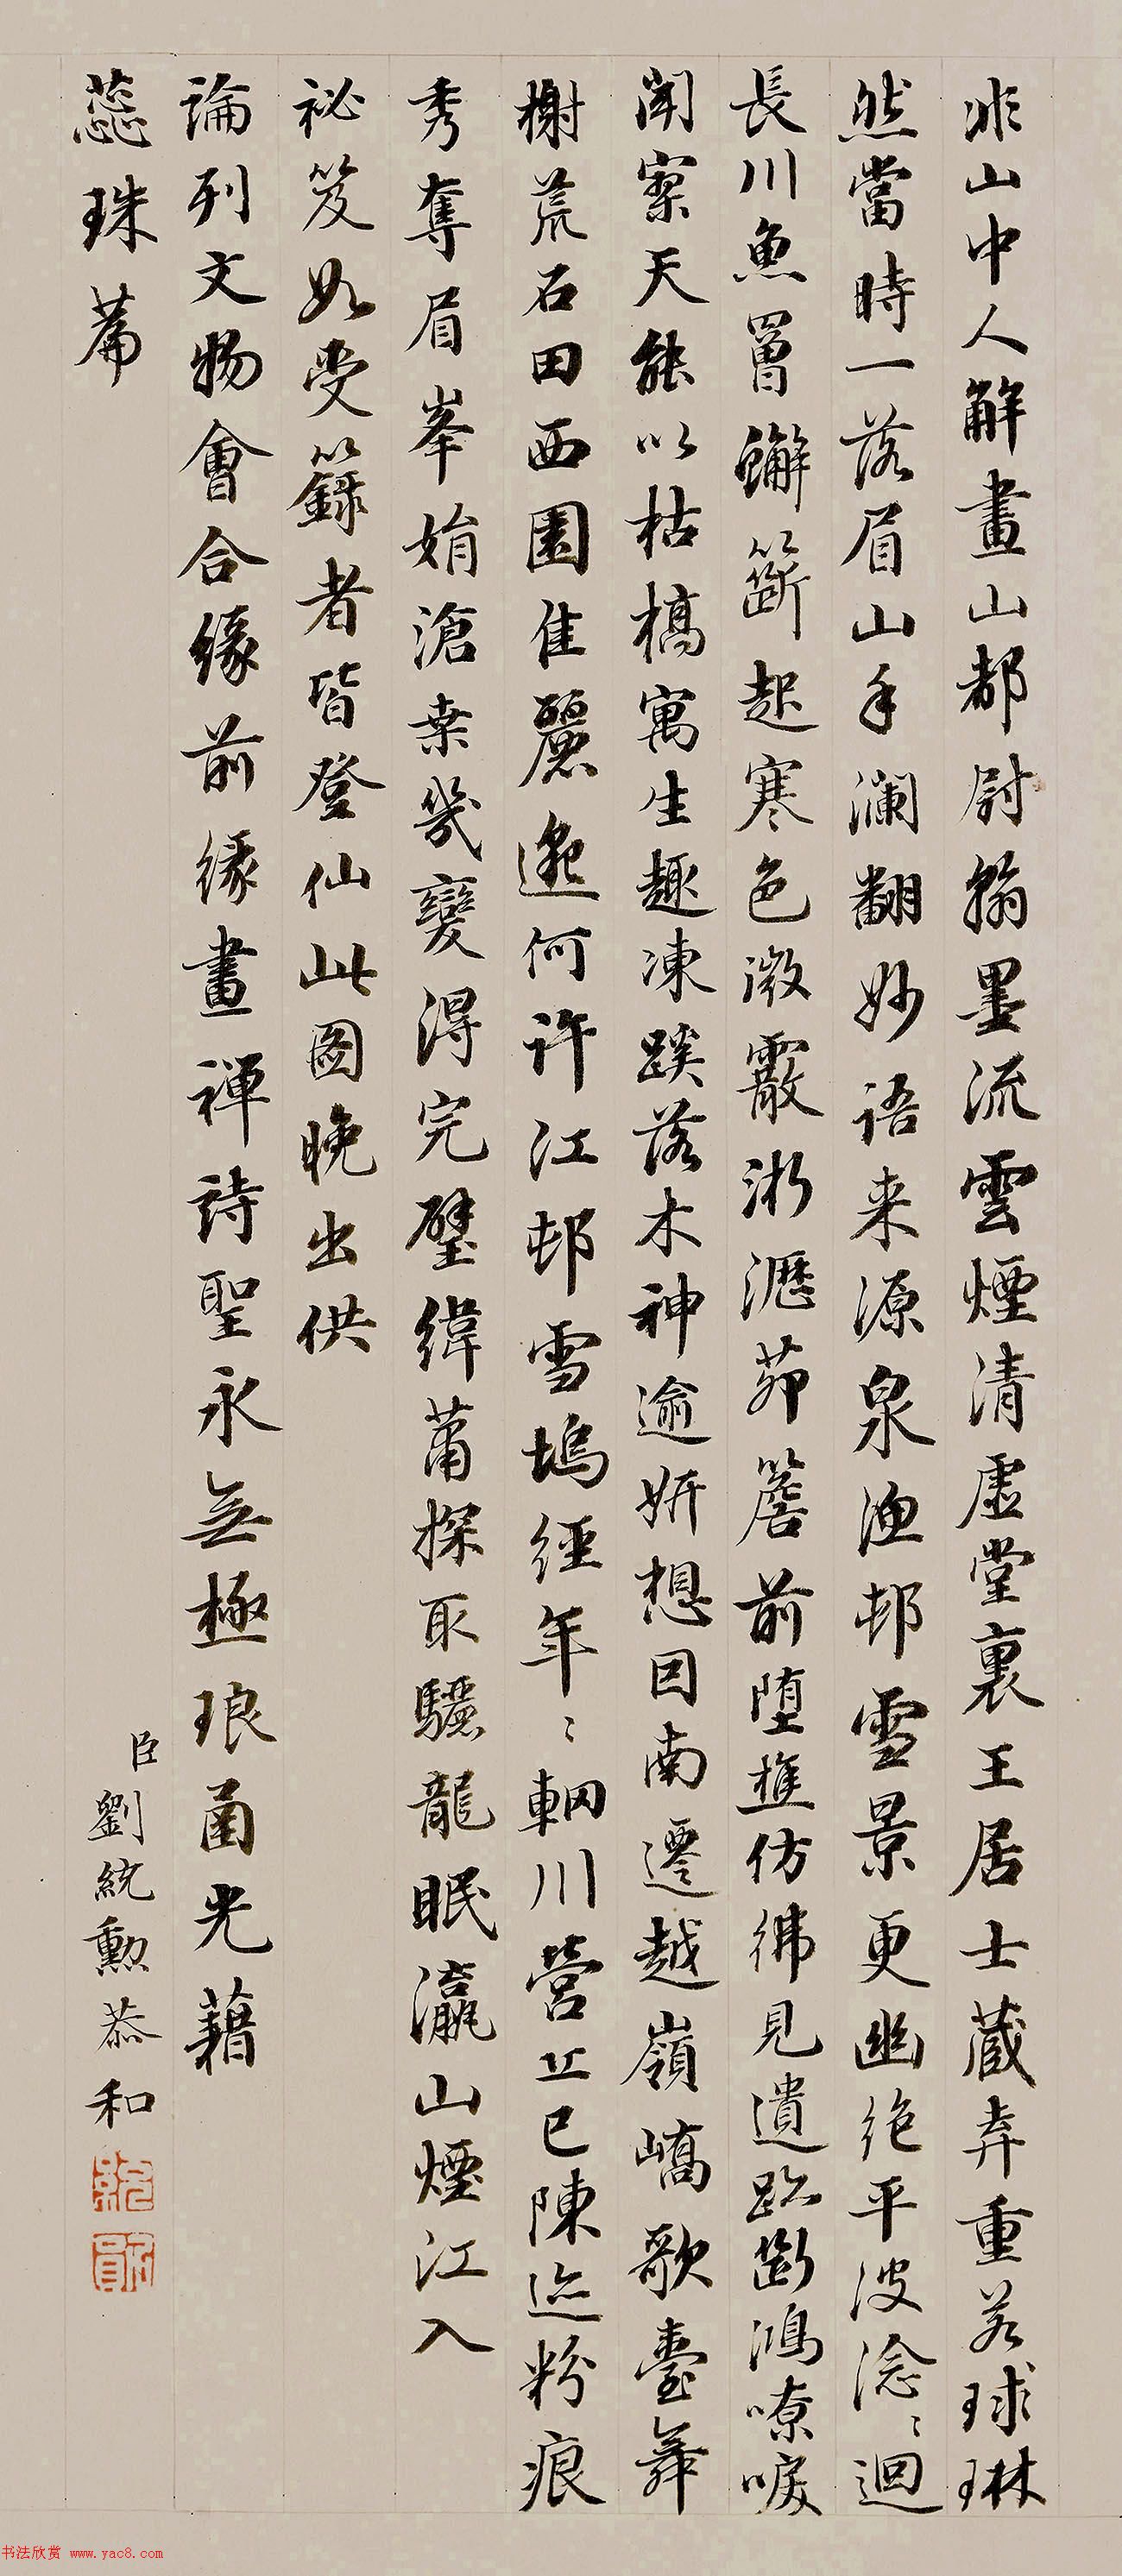 非山中人解畫山都尉翰墨流雲煙清虛堂裏王居士藏弆重若球琳
然當時一落眉山手瀾翻妙語来源泉漁邨雪景更幽絶平波淰〻迴
長川魚罾蠏籪起寒色微霰淅瀝茆簷前墮樵仿彿見遺跡斷鴻嘹唳
聞寥天能以枯槁寓生趣凍蹊落木神逾妍想因南遷越嶺嶠歌臺舞
榭荒石田西園佳麗邈何許江邨雪塢經年〻輞川營丘已陳迹粉痕
秀奪眉峯娟滄桑幾變得完璧緯蕭探取驪龍眠瀛山煙江入
祕笈如受籙者皆登仙此圖晚出供
論列文物會合緣前緣畫禪詩聖永無極琅函光藉
蕊珠篇
臣劉統勳恭和
統勳
书法欣赏 www.yac8.com